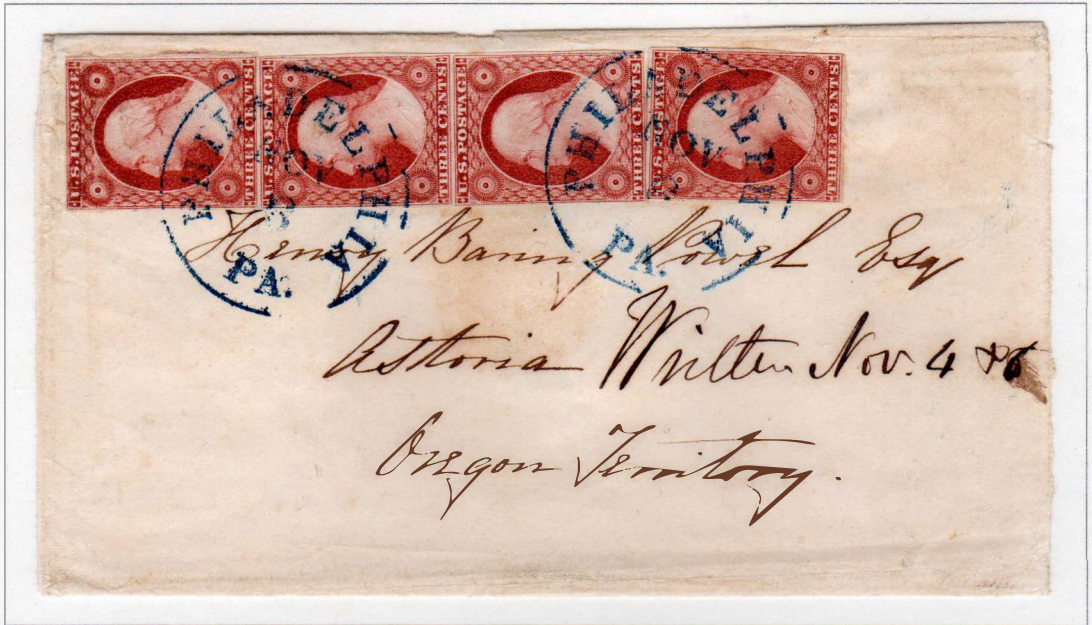 U.S. POSTAGE THREE CENTS U.S. POSTAGE THREE CENTS U.S. POSTAGE THREE CENTS U.S. POSTAGE THREE CENTS
PHILADELPHIA PA. NOV
PHILADELPHIA PA. NOV
Henry Baring Powel Esq
Astoria Written Nov. 4 & 6
Oregon Territory.